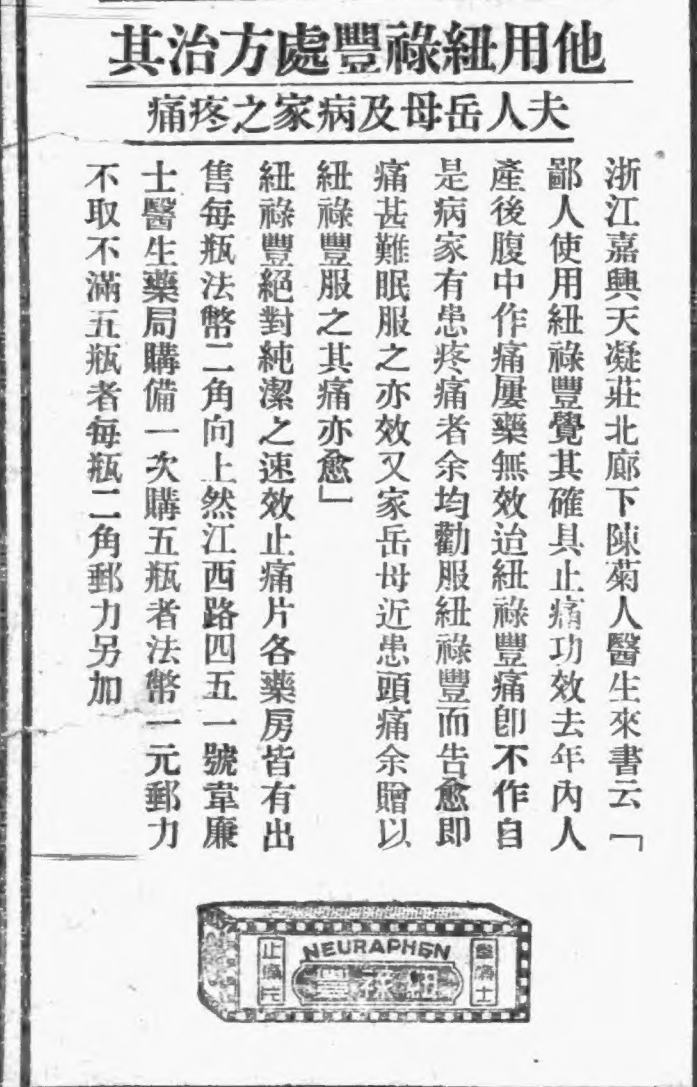 他用紐祿豐處方治其
夫人岳母及病家之疼痛
浙江嘉興天凝莊北廊下陳菊人醫生來書云「
鄙人使用紐祿豐覺其確具止痛功效去年內人
產後腹中作痛屢藥無效迨紐祿豐痛卽不作自
是病家有患疼痛者余均勸服紐祿豐而告愈即
痛甚難眠服之亦效又家岳母近患頭痛余贈以
紐祿豐服之其痛亦愈」
紐祿豐絕對純潔之速效止痛片各藥房皆有出
售每瓶法幣二角向上然江西路四五一號韋廉
士醫生藥局購備一次購五瓶者法幣一元郵力
不取不滿五瓶者每瓶二角郵力另加
NEURAPHEN
紐祿豐
止痛片